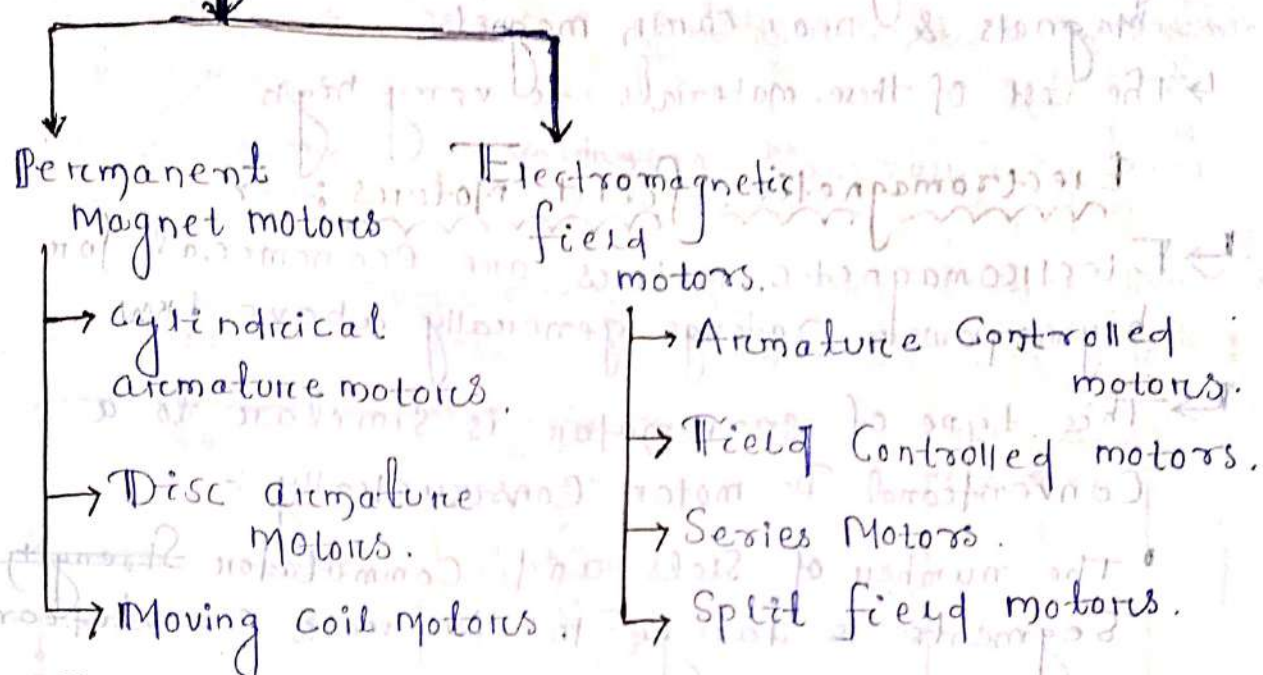 Permanent
Magnet motors
→ Cylindrical
armature motors.
→ Disc armature
Motors.
→ Moving coil motors.
Electromagnetic
field
motors.
→ Armature Controlled
motors.
→ Field Controlled motors.
→ Series Motors.
→ Split field motors.